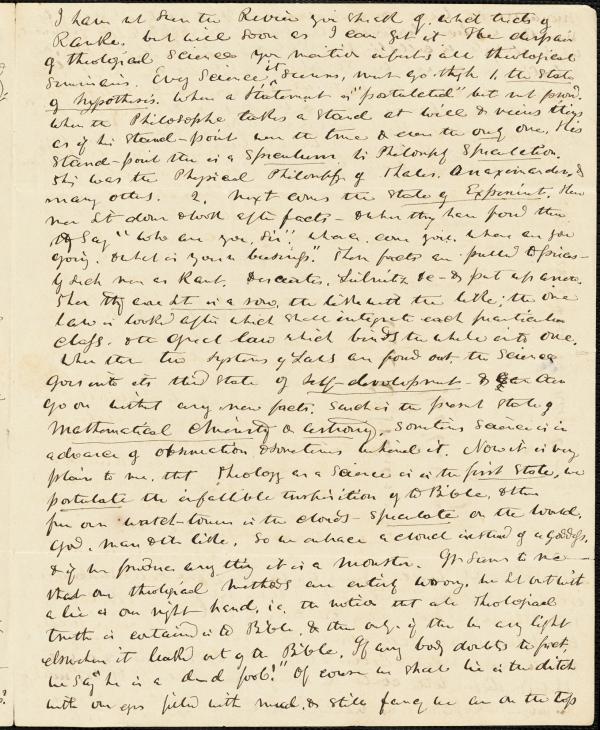 I have not seen the Review you speak of, which treats of
Ranke, but will soon as I can get it. The despair
of theological science you mention infects all theological
Seminaries. Every Science, it seems, must go thro 1. the State
of hypothesis. When a Statement is "postulated" but not proved.
When the Philosophe takes a stand at will & views things
as if his stand-point were the true & even the only one. His
stand-point then is a Speculum, his Philosophy Speculation.
This was the Physical Philosophy of Thales, Anaximander, &
many others. 2. Next comes the State of Experiment. Then
men set down & look after facts — & when they have found them
Say "who are you, Sir", whence come you, where are you
going, & what is your business". Then facts are pieces
by such men as Kant, Descartes, Leibnitz &c - & put up
Then they are set in a row, the like with the like; the one
law is looked after which shall integrate each particular
class, & the great law which binds the whole into one.
When then the Systems of Laws are found out, the Science
goes into its third State of Self-development - & can
go on without any new facts. Such is the present State of
Mathematical chemistry & astronomy. Sometimes Science is in
advance of observation & sometimes behind it. Now it is very
plain to me, that Theology as a Science is in the first State, we
postulate the infallible inspiration of the Bible, & then
from our watch-tower in the clouds - speculate on the world,
God, man & the like. So we embrace a cloud instead of a goddess,
& if we produce any thing it is a monster. It seems to me —
that our theological methods are entirely wrong. We set out with
a lie in our right hand, i.e. the notion that all Theological
truth is contained in the Bible, & then only. if there be any light
elsewhere it leaked out of the Bible. If any body doubts the fact,
we Say he is a dead "fool!" Of course we shall lie in the ditch
with our eyes filled with mud, & still fancy we are on the top